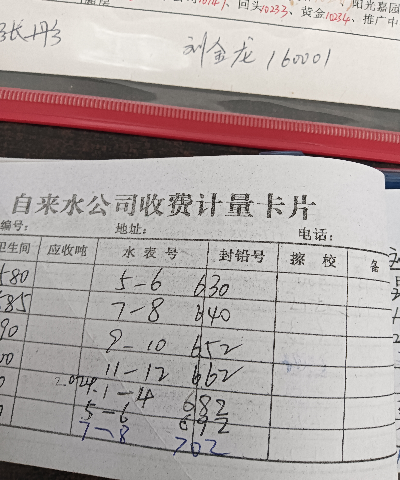 回头10233、黄金10234、推广中
阳光嘉园
张丹 刘金龙 160001
自来水公司收费计量卡片
编号: 地址: 电话:
卫生间 应收吨 水表号 封铅号 擦校 备
580 5-6 630
585 7-8 640
90 9-10 652
00 11-12 662
0 2024.1-4 682
0 5-6 692
7-8 702